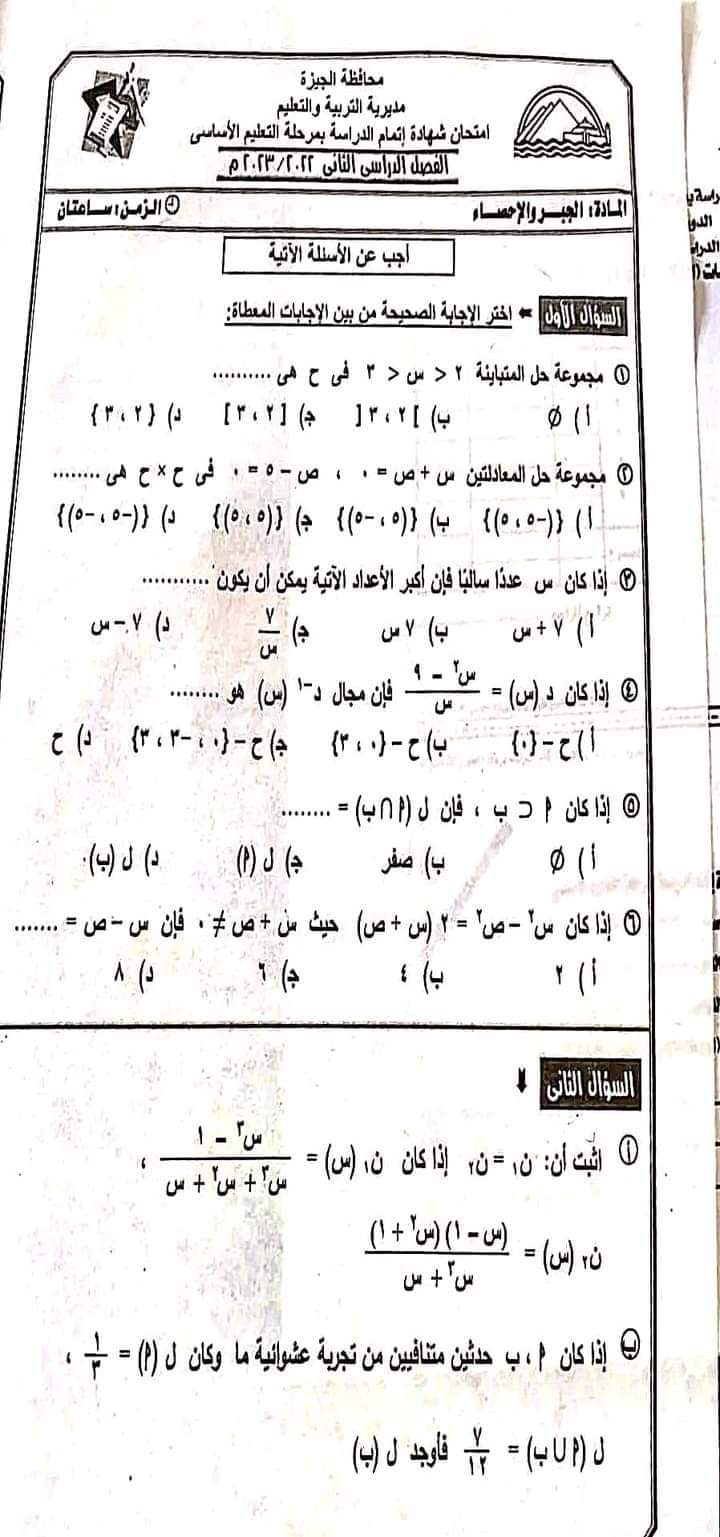 محافظة الجيزة
مديرية التربية والتعليم
امتحان شهادة إتمام الدراسة بمرحلة التعليم الأساسى
الفصل الدراسى الثانى ٢٠٢٢/ ٢٠٢٣م
المادة: الجبر والإحصاء الزمن: ساعتان
أجب عن الأسئلة الآتية
السؤال الأول اختر الإجابة الصحيحة من بين الإجابات المعطاة:
١ مجموعة حل المتباينة ٢ < س < ٣ فى ح هى ..........
أ ) ∅ ب) ]٢ ، ٣[ ج) [٢ ، ٣] د) {٢ ، ٣}
٢ مجموعة حل المعادلتين س + ص = ٠ ، ص – ٥ = ٠ فى ح × ح هى ........
أ ) {(–٥ ، ٥)} ب) {(٥ ، –٥)} ج) {(٥ ، ٥)} د) {(–٥ ، –٥)}
٣ إذا كان س عددًا سالبًا فإن أكبر الأعداد الآتية يمكن أن يكون ..........
أ ) ٧ + س ب) ٧ س ج) ٧/س د) ٧ – س
٤ إذا كان د (س) = (س² – ٩)/س فإن مجال د⁻¹ (س) هو ........
أ ) ح – {٠} ب) ح – {٠ ، ٣} ج) ح – {٠ ، –٣ ، ٣} د) ح
٥ إذا كان ٩ ⊂ ب ، فإن ل (٩ ∩ ب) = ........
أ ) ∅ ب) صفر ج) ل (٩) د) ل (ب)
٦ إذا كان س² – ص² = ٢ (س + ص) حيث س + ص ≠ ٠ فإن س – ص = .......
أ ) ٢ ب) ٤ ج) ٦ د) ٨
السؤال الثانى
أ اثبت أن: ن₁ = ن₂ إذا كان ن₁ (س) = (س³ – ١)/(س³ + س² + س) ،
ن₂ (س) = (س – ١) (س² + ١)/(س³ + س)
ب إذا كان ٩ ، ب حدثين متنافيين من تجربة عشوائية ما وكان ل (٩) = ١/٣ ،
ل (٩ ∪ ب) = ٧/١٢ فأوجد ل (ب)